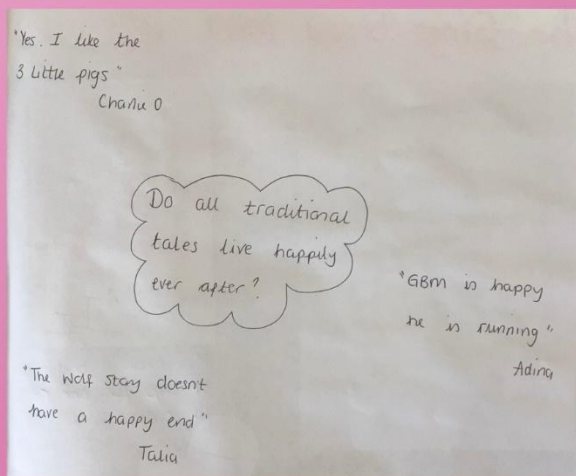 "Yes. I like the
3 Little pigs"
Charlie O
Do all traditional
tales live happily
ever after?
"GBM is happy
he is running"
Adina
"The Wolf Story doesn't
have a happy end"
Talia